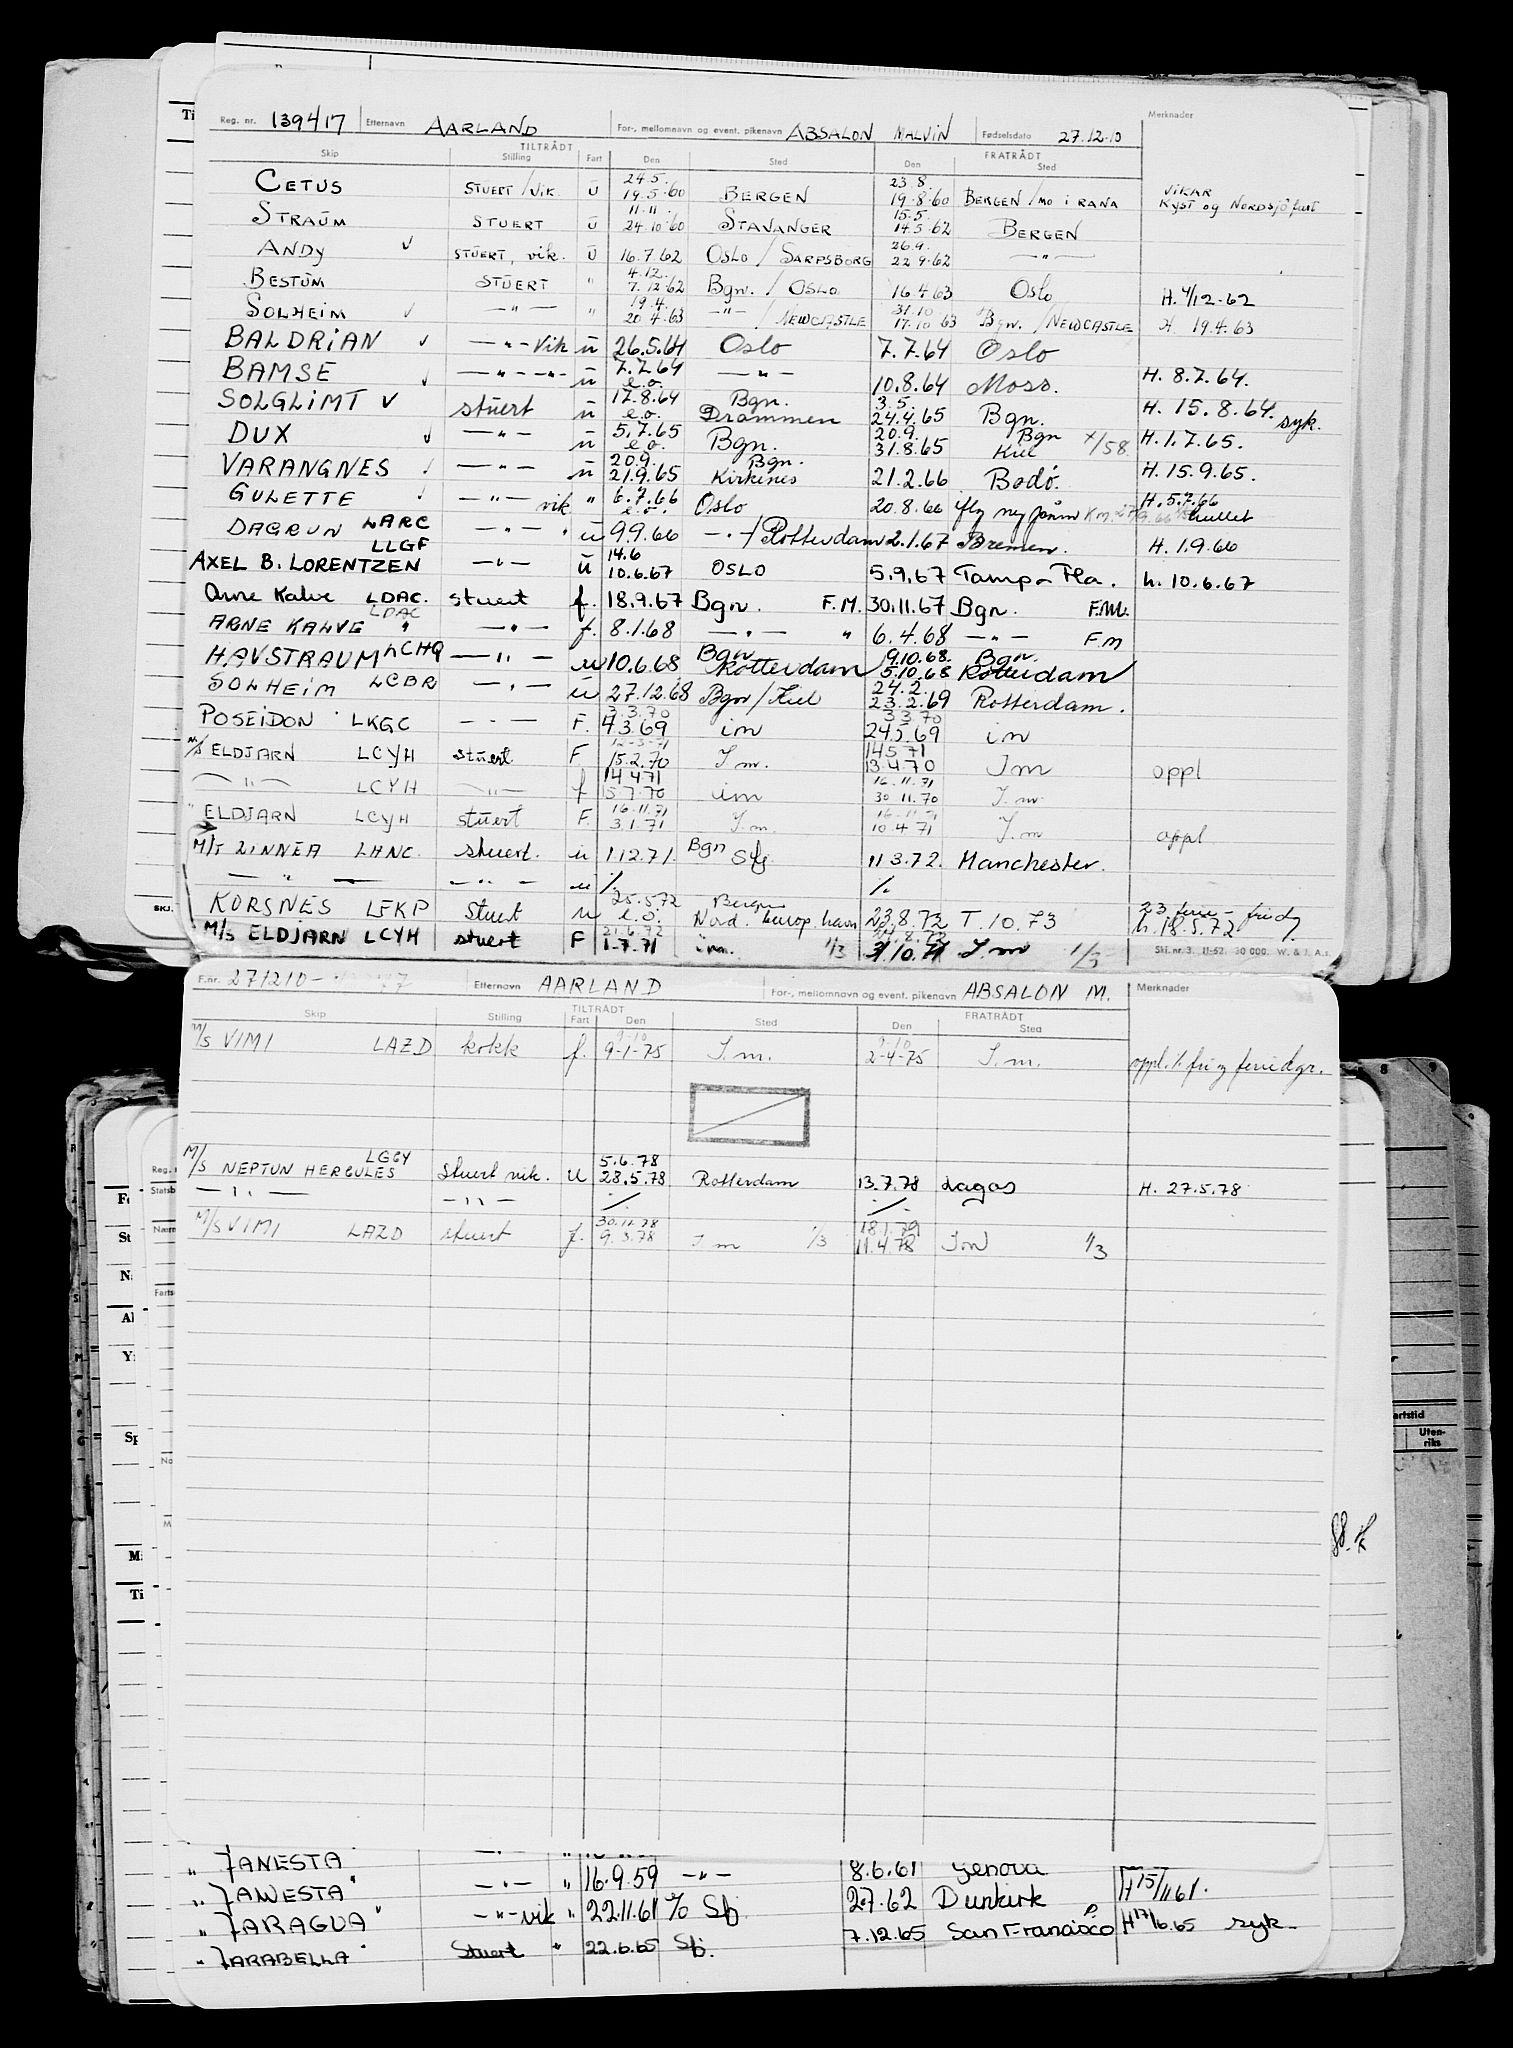 Reg. nr. 139417 Etternavn AARLAND For-, mellomnavn og event. pikenavn ABSALON MALVIN Fødselsdato 27.12.10 Merknader
TILTRÅDT FRATRÅDT
Skip Stilling Fart Den Sted Den Sted
CETUS STUERT/VIK. U 24.5. 19.5.60 BERGEN 23.8. 19.8.60 BERGEN/MO I RANA VIKAR KYST OG NORDSJØFART
STRAUM STUERT U 11.11. 24.10.60 STAVANGER 15.5. 14.5.62 BERGEN
ANDY ✓ STUERT, VIK. U 16.7.62 OSLO/SARPSBORG 26.9. 22.9.62 —"—
BESTUM STUERT " 4.12. 7.12.62 Bgn./OSLO 16.4.63 Oslo H. 4/12-62
SOLHEIM ✓ —"— " 19.4. 20.4.63 —"—/NEWCASTLE 31.10 17.10.63 Bgn./NEWCASTLE H. 19.4.63
BALDRIAN ✓ —"— Vik u 26.5.64 Oslo 7.7.64 Oslo
BAMSE ✓ —"—"— u 7.7.64 e.o. —"— 10.8.64 Moss. H. 8.7.64.
SOLGLIMT ✓ stuert u 17.8.64 e.o. Bgn. Drammen 3.5. 24.4.65 Bgn. H. 15.8.64. syk.
DUX ✓ —"— u 5.7.65 e.o. Bgn. 20.9. 31.8.65 Bgn Kiel X/58 H.1.7.65.
VARANGNES ✓ —"— u 20.9. 21.9.65 Bgn. Kirkenes 21.2.66 Bodø. H.15.9.65.
GULETTE ✓ —"— vik " 6.7.66 e.o. Oslo 20.8.66 H.5.7.66
DAGRUN LARC —"— " u 9.9.66 —"—/Rotterdam 2.1.67 Bremen. H. 1.9.66
AXEL B. LORENTZEN LLGF —"— u 14.6 10.6.67 OSLO 5.9.67 Tampa Fla. h. 10.6.67
Arne Kalve LDAC. stuert f. 18.9.67 Bgn. F.M. 30.11.67 Bgn. F.M.
ARNE KALVE LDAC " —"— f. 8.1.68 —"— " 6.4.68 —"— F M
HAVSTRAUM LCHQ —"— u 10.6.68 Bgn Rotterdam 9.10.68. 5.10.68 Bgn. Rotterdam
SOLHEIM LCBR —"— u 27.12.68 Bgn/Kiel 24.2. 23.2.69 Rotterdam.
POSEIDON LKGC —"— F. 3.3.70 4.3.69 im 3.3.70 24.5.69 im
M/S ELDJARN LCYH stuert F 12-3-71 15.2.70 I m. 14571 13.4.70 I m oppl
—"— LCYH —"— f 14471 15.7.70 im 16.11.71 30.11.70 I. m
" ELDJARN LCYH stuert F. 16.11.71 3.1.71 I.m. 16.11.71 10.4.71 I.m oppl
M/T LINNEA LHNC. stuert. u 1.12.71. Bgn Sfj 11.3.72. Manchester.
—"— —"— u /. /.
KORSNES LFKP Stuert u 25.5.72 e.o. Bergen Nord. europ. havn 23.8.72 T. 10.73 h.18.5.72
M/S ELDJARN LCYH stuert F 21.6.72 1-7.71 im. 1/3 31.10.71 I.m 1/3 Skj. nr. 3. 11-62. 30 000. W. & J. A.s
F.nr. 271210- Etternavn AARLAND For-, mellomnavn og event. pikenavn ABSALON M. Merknader
TILTRÅDT FRATRÅDT
Skip Stilling Fart Den Sted Den Sted
M/S VIMI LAZD kokk f. 9-10 9-1-75 I.m. 9-10 2-4-75 I.m. oppl. /. fri og feriedgr.
M/S NEPTUN HERCULES LGGY Stuert vik. U 5.6.78 28.5.78 Rotterdam 13.7.78 Lagos H. 27.5.78
—"— —"— /. /.
M/S VIMI LAZD stuert f. 30.11.78 9.3.78 I m 1/3 18.1.79 11.4.78 I m 1/3
" JANESTA —"— "
" JANESTA" —"— " 16.9.59 —"— 8.6.61 Genova
" TARAGUA" —"— vik " 22.11.61 % Sfj. 2.7.62 Dunkirk H 15/11 61.
" TARABELLA" Stuert " 22.6.65 Sfj. 7.12.65 San Francisco H 17/6.65 syk.
artstid
Uten-
riks